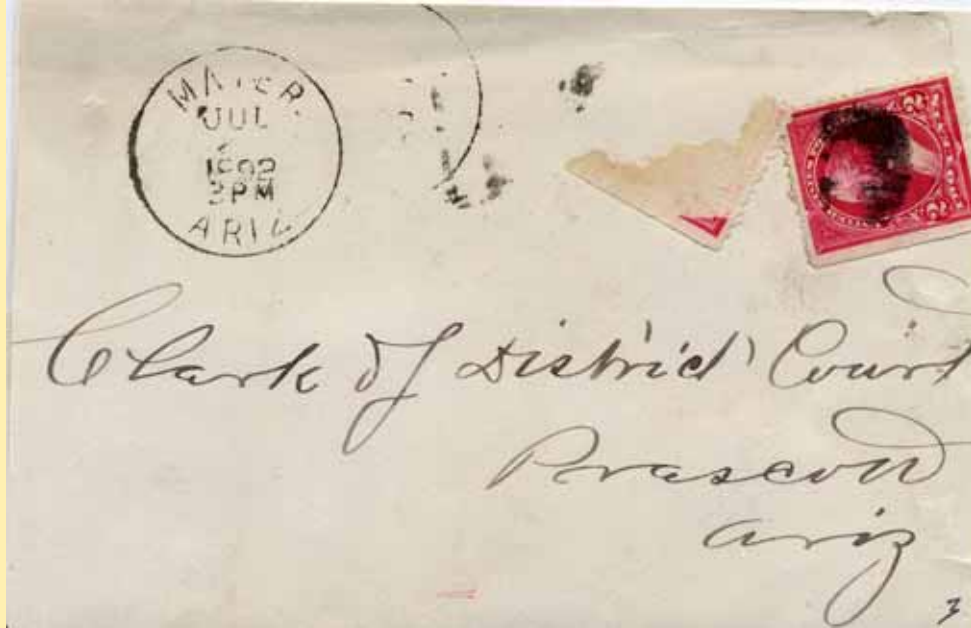 MAYER.
JUL
2PM
ARIZ
2 2
Clark of District Court
Prascott
Ariz
3